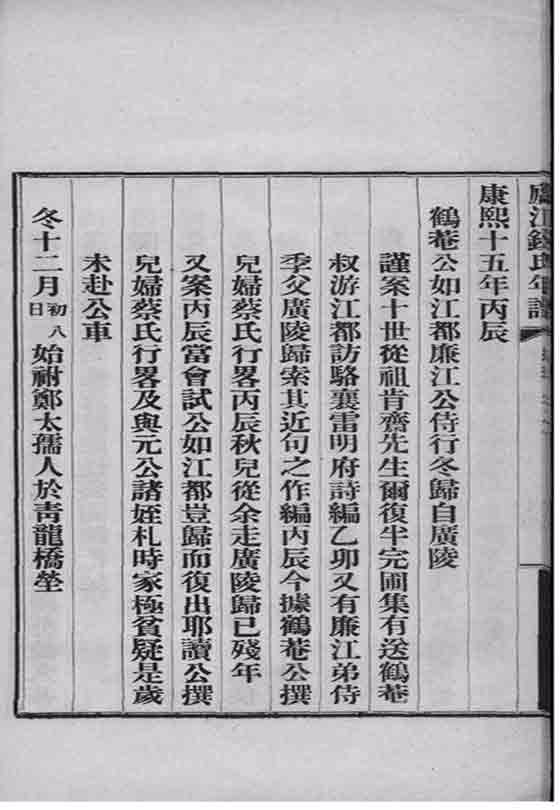 廬江錢氏年譜
康熙十五年丙辰
鶴菴公如江都廉江公侍行冬歸自廣陵
謹案十世從祖肯齋先生爾復牛完圃集有送鶴菴
叔游江都訪駱襄雷明府詩編乙卯又有廉江弟侍
季父廣陵歸索其近句之作編丙辰今據鶴菴公撰
兒婦蔡氏行畧丙辰秋兒從余走廣陵歸已殘年
又案丙辰當會試公如江都豈歸而復出耶讀公撰
兒婦蔡氏行畧及與元公諸姪札時家極貧疑是歲
未赴公車
冬十二月初八日始祔鄭太孺人於靑龍橋塋